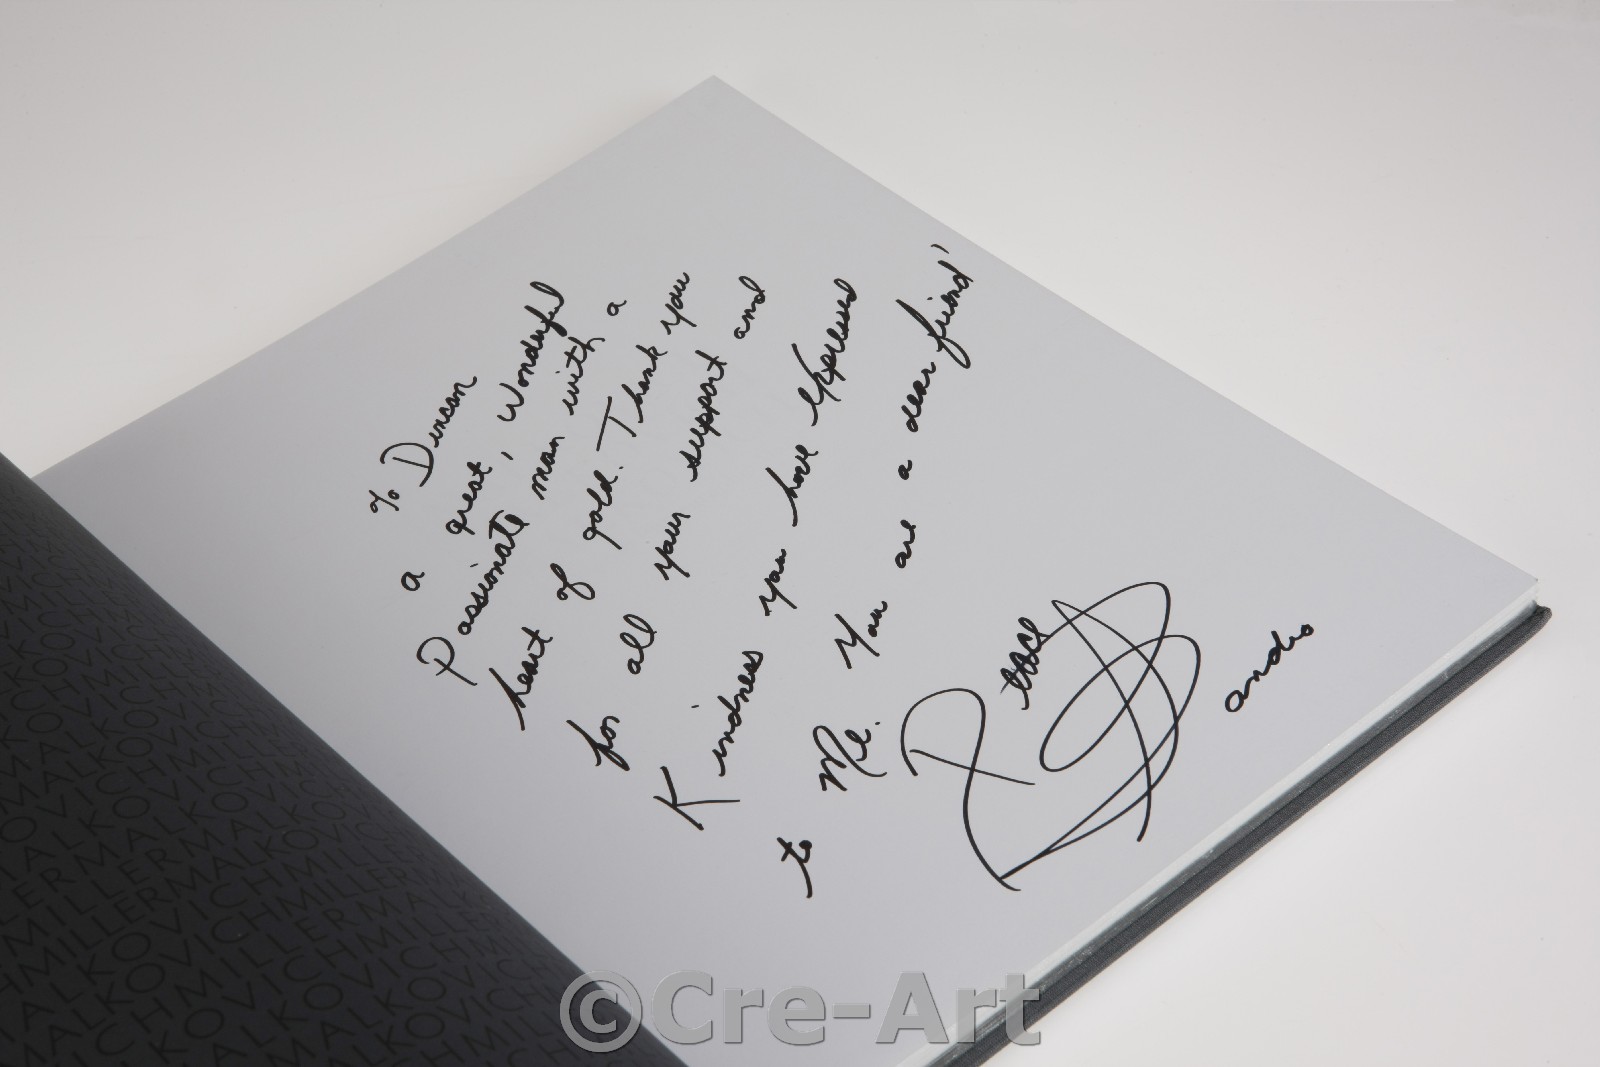 To Duncan
a great, Wonderful
Passionate man with a
heart of gold. Thank you
for all your support and
Kindness you have Expressed
to Me. You are a dear friend'
Peace
MALKOVICHMILLERMALKOVICHMILLER
©Cre-Art